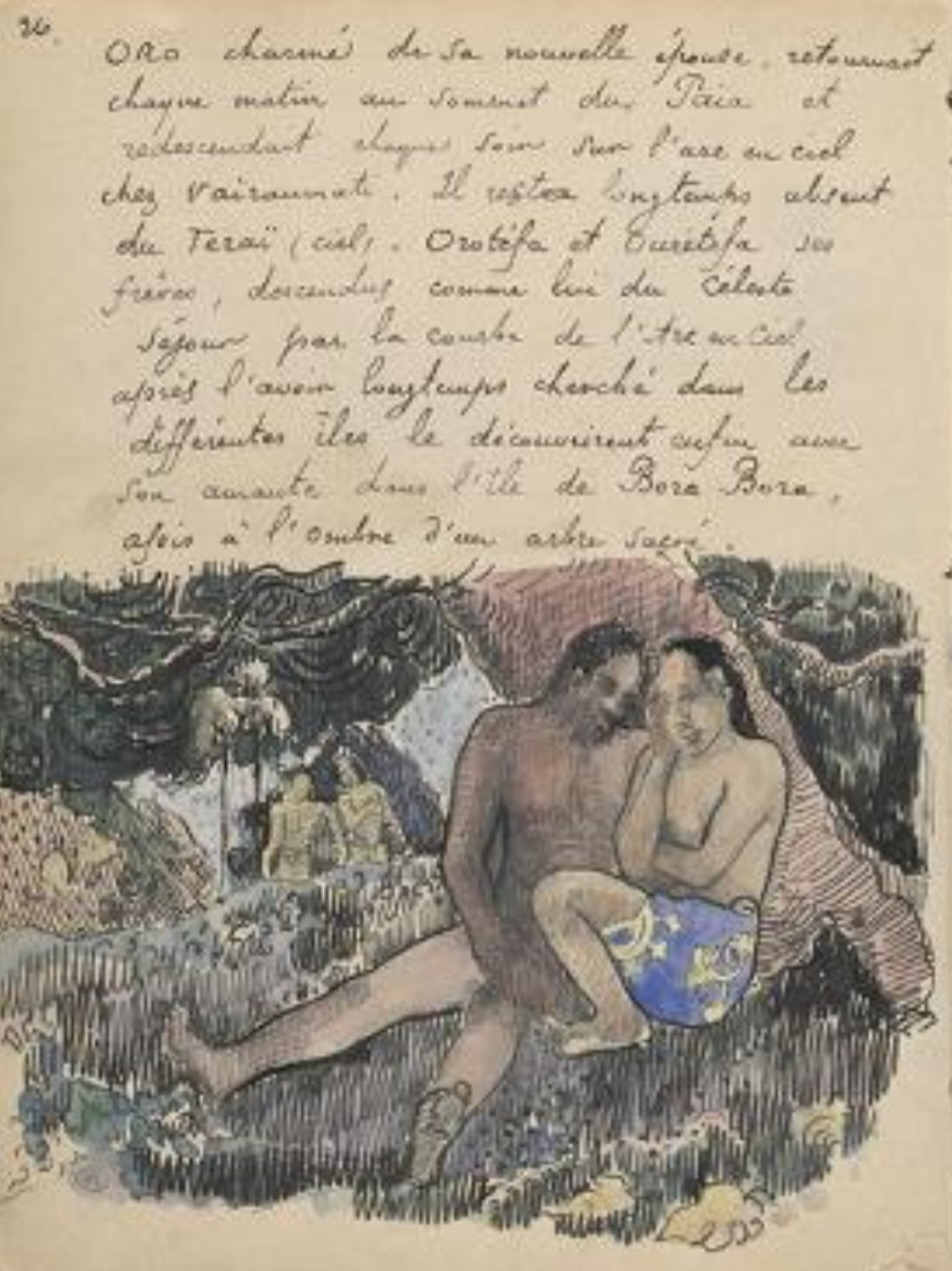 26.
Oro charmé de sa nouvelle épouse, retournait
chaque matin au sommet du Païa et
redescendait chaque soir sur l'arc en ciel
chez Vaïraumati. Il resta longtemps absent
du Teraï (ciel). Orotéfa et Ourétéfa ses
frères, descendus comme lui du Céleste
Séjour par la courbe de l'Arc en ciel,
après l'avoir longtemps cherché dans les
différentes îles le découvrirent enfin avec
son amante dans l'île de Bora Bora,
assis à l'ombre d'un arbre sacré.